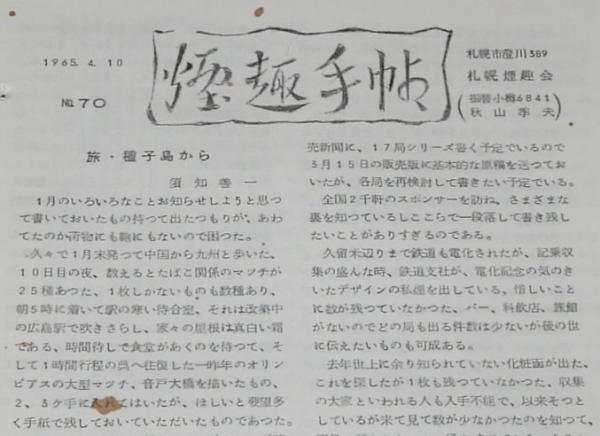 1965. 4. 10
No. 70
煙趣手帖
札幌市澄川389
札幌煙趣会
(振替小樽6841)
秋山季夫
旅・種子島から
須知善一
1月のいろいろなことお知らせしようと思つ
て書いておいたもの持つて出たつもりが、あわ
てたのか荷物にも鞄にもないので困つた。
久々で1月末発つて中国から九州と歩いた、
10日目の夜、数えるとたばこ関係のマツチが
25種あつた、1枚しかないものも数種あり、
朝5時に着いて駅の寒い待合室、それは改築中
の広島駅で吹きさらし、家々の屋根は真白い霜
である、時間待しで食堂があくのを待つて、そ
して1時間行程の呉へ往復した一昨年のオリン
ピアスの大型マツチ、音戸大橋を描いたもの、
2、3ケ手に入れてはいたが、ほしいと要望多
く手紙で残しておいていただいたものであつた。
売新聞に、17局シリーズ書く予定でいるので
3月15日の販売版に基本的な原稿を送つてお
いたが、各局を再検討して書きたい予定でいる。
全国2千軒のスポンサーを訪ね、さまざまな
裏を知つているしここらで一段落して書き残し
たいことがありすぎるのである。
久留米辺りまで鉄道も電化されたが、記乗収
集の盛んな時、鉄道支社が、電化記念の気のき
いたデザインの私煙を出している、惜しいこと
に数が残つていなかつた、バー、料飲店、旅館
がないのでどの局も出る件数は少ないが後の世
に伝えたいものも可成ある。
去年世上に余り知られていない化粧函が出た、
これを探したが1枚も残つていなかつた、収集
の大家といわれる人も入手不能で、以来そつと
しているが来て見て数が少なかつたのを知つて、